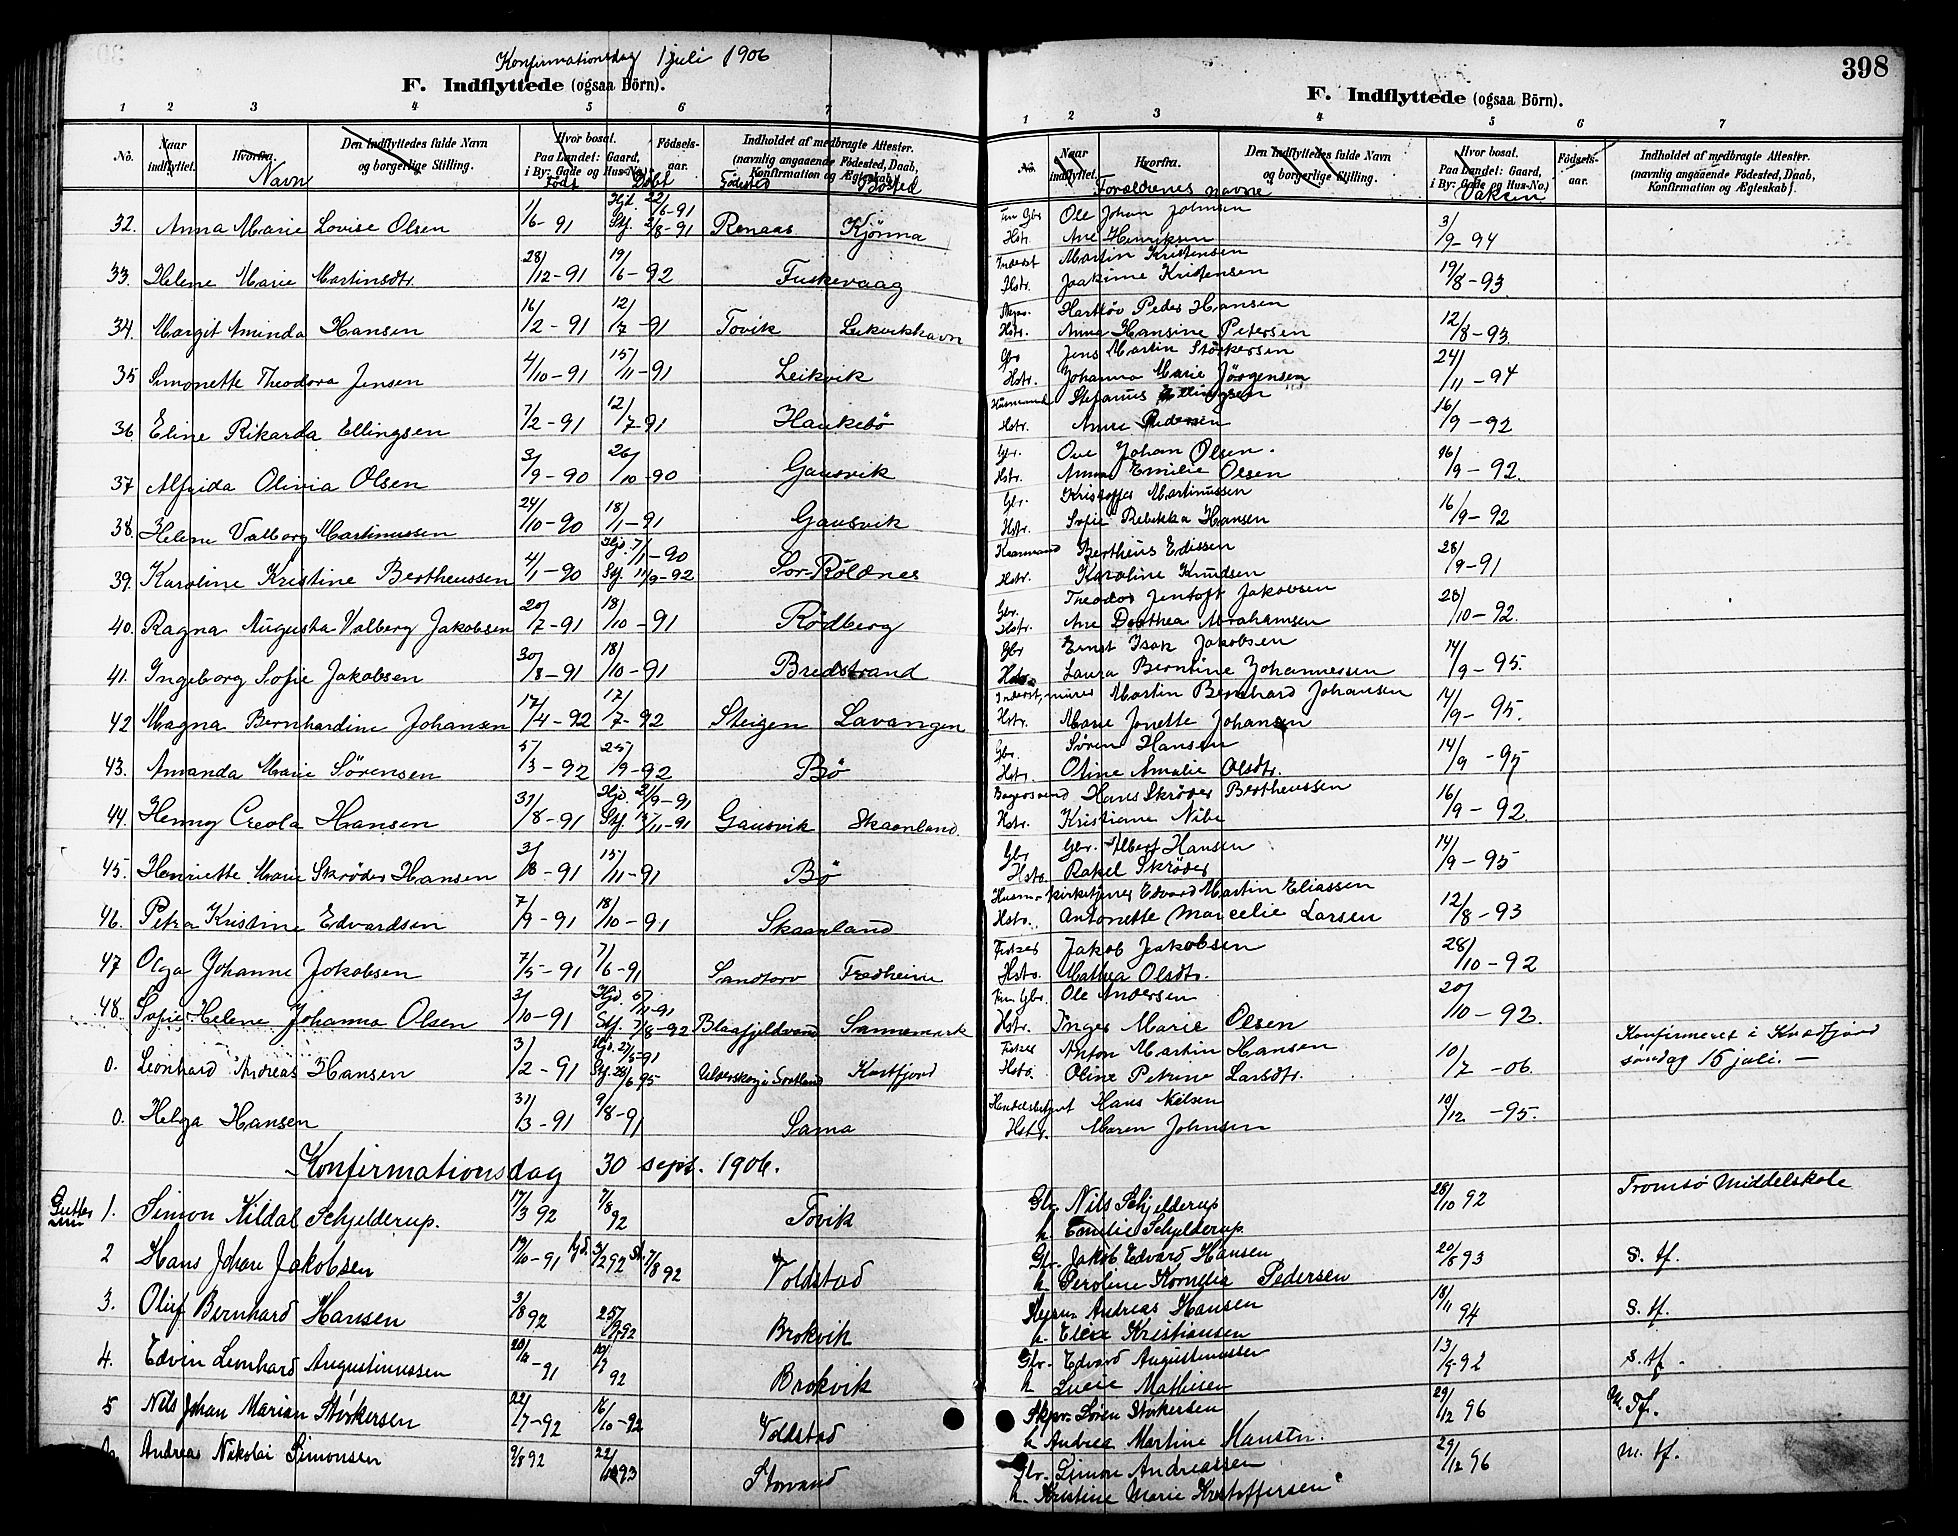 Konfirmationsdag 1 juli 1906
F. Indflyttede (ogsaa Börn).
1 2 3 4 5 6 7
No. Naar indflyttet. Hvorfra. Den Indflyttedes fulde Navn og borgerlige Stilling. Hvor bosat. Paa Landet: Gaard, i By: Gade og Hus-No.) Födsels-aar. Indholdet af medbragte Attester. (navnlig angaaende Födested, Daab, Konfirmation og Ægteskab).
Navn Födt Döbt Födested Bosted
32. Anna Marie Lovise Olsen 1/6-91 Hjd. 22/6-91 Stf. 2/8-91 Renaas Kjönna
33. Helene Marie Martinsdtr. 28/12-91 19/6-92 Fuskevaag
34. Margit Aminda Hansen 16/2-91 12/7-91 Tovik Leikvikshavn
35 Simonette Theodora Jensen 4/10-91 15/11-91 Leikvik
36 Eline Rikarda Ellingsen 7/2-91 12/7-91 Haukebö
37 Alfrida Olivia Olsen 3/9-90 26/10-90 Gausvik
38. Helene Valborg Martinussen 24/10-90 18/1-91 Gausvik
39. Karoline Kristine Bertheussen 4/1-90 Hjd. 7/1-90 Stf. 11/9-92 Sör-Röldnes
40. Ragna Augusta Valberg Jakobsen 20/7-91 18/10-91 Rödberg
41. Ingeborg Sofie Jakobsen 30/8-91 18/10-91 Bredstrand
42 Magna Bernhardine Johansen 17/4-92 17/7-92 Steigen Lavangen
43. Amanda Marie Sörensen 5/3-92 25/9-92 Bö
44. Henny Creola Hansen 31/8-91 Hjd. 21/9-91 Stf. 15/11-91 Gausvik Skaanland.
45. Henriette Marie Skröder Hansen 3/8-91 15/11-91 Bö
46. Petra Kristine Edvardsen 7/9-91 18/10-91 Skaanland
47 Olga Johanne Jakobsen 7/5-91 7/6-91 Sandtorv Fredheim
48. Sofie Helene Johanna Olsen 3/10-91 Hjd. 5/11-91 Stf. 7/8-92 Blaafjeldvand Sannemark
0. Leonhard Andreas Hansen 3/2-91 Hjd. 27/5-91 Stf. 28/6 95 Sortland Kasfjord
0. Helga Hansen 31/3-91 9/8-91 Sama
Konfirmationsdag 30 sept. 1906.
Gutter 1. Simon Kildal Schjelderup. 17/3 92 7/8 92 Tovik
2 Hans Johan Jakobsen 19/10-91 hjd. 3/2 92 St. 7/8 92 Voldstad
3. Oluf Bernhard Hansen 3/8 92 25/9 92 Brokvik
4. Edvin Leonhard Augustinussen -91 92 Brokvik
5 Nils Johan Marian Störkersen 22/7-92 16/10-92 Voldstad
Andreas Nikolai Simonsen 9/8 92 22/ 93 Storvand
398
F. Indflyttede (ogsaa Börn).
1 2 3 4 5 6 7
No. Naar indflyttet. Hvorfra. Den Indflyttedes fulde Navn og borgerlige Stilling. Hvor bosat. Paa Landet: Gaard, i By: Gade og Hus-No.) Födsels-aar. Indholdet af medbragte Attester. (navnlig angaaende Födested, Daab, Konfirmation og Ægteskab).
Forældrenes navne Vaksin
Gbr Ole Johan Johnsen
Hstr. Ane Henriksen 3/9-94
Inderst Martin Kristensen
Hstr. Joakime Kristensen 19/8-93
Hartlöv Peder Hansen
Hstr. Anna Hansine Petersen 12/8-93
Gbr Jens Martin Störkersen
Hstr. Johanna Marie Jörgensen 24/11-94
Husmand Stefanus Ellingsen
Hstr. Anne Pedersen 16/9-92
Gbr. Ove Johan Olsen.
Hstr. Anna Emilie Olsen 16/9-92.
Gbr. Kristoffer Martinussen
Hstr. Sofie Rebekka Hansen 16/9-92
Kaarmand Bertheus Edissen
Hstr. Karoline Knudsen 28/9-91
Gbr. Theodor Jentoft Jakobsen
Hstr. Ane Dorthea Abrahamsen 28/10-92.
Gbr Ernst Isak Jakobsen
Hstr. Laura Berntine Johannessen 14/9-95.
Inderst, minør Martin Bernhard Johansen
Hstr. Marie Jonette Johansen 14/9-95.
Gbr. Sören Hansen
Hstr. Oline Amalie Olsdtr. 14/9-95
Bagersvend Hans Skröder Bertheussen
Hstr. Kristiane Nibe 16/9-92.
Gbr Gbr. Albert Hansen
Hstr. Rakel Skröder 14/9-95
Husm.-kirketjener Edvard Martin Eliassen
Hstr. Antonette Marcelie Larsen 12/8-93
Fisker Jakob Jakobsen
Hstr. Mathea Olsdtr. 28/10-92
Gbr. Ole Andersen
Hstr. Inger Marie Olsen 20/10-92.
Fisker Anton Martin Hansen Konfirmeret i Kvædfjord
Hstr. Oline Petrine Larsdtr. 10/7-06. söndag 15 juli. —
Handelsbetjent Hans Nilsen
Hstr. Maren Johnsen 10/12-95.
Gbr. Nils Schjelderup 28/10 92 Tromsö Middelskole
h. Emilie Schjelderup.
Gbr. Jakob Edvard Hansen 20/8 93 S. tf.
h. Peroline Kornelia Pedersen
Andreas Hansen 18/11 94 S. tf.
h. Elea Kristiansen
Gbr. Edvard Augustinussen 13/9 92 S. tf.
h Lucie Mathisen
Skpr. Sören Störkersen 29/12 96 M. Tf.
h Andrea Martine Hanstn.
Gbr. Simon Andreassen 29/12 96 M. tf.
h. Kristine Marie Kristoffersen